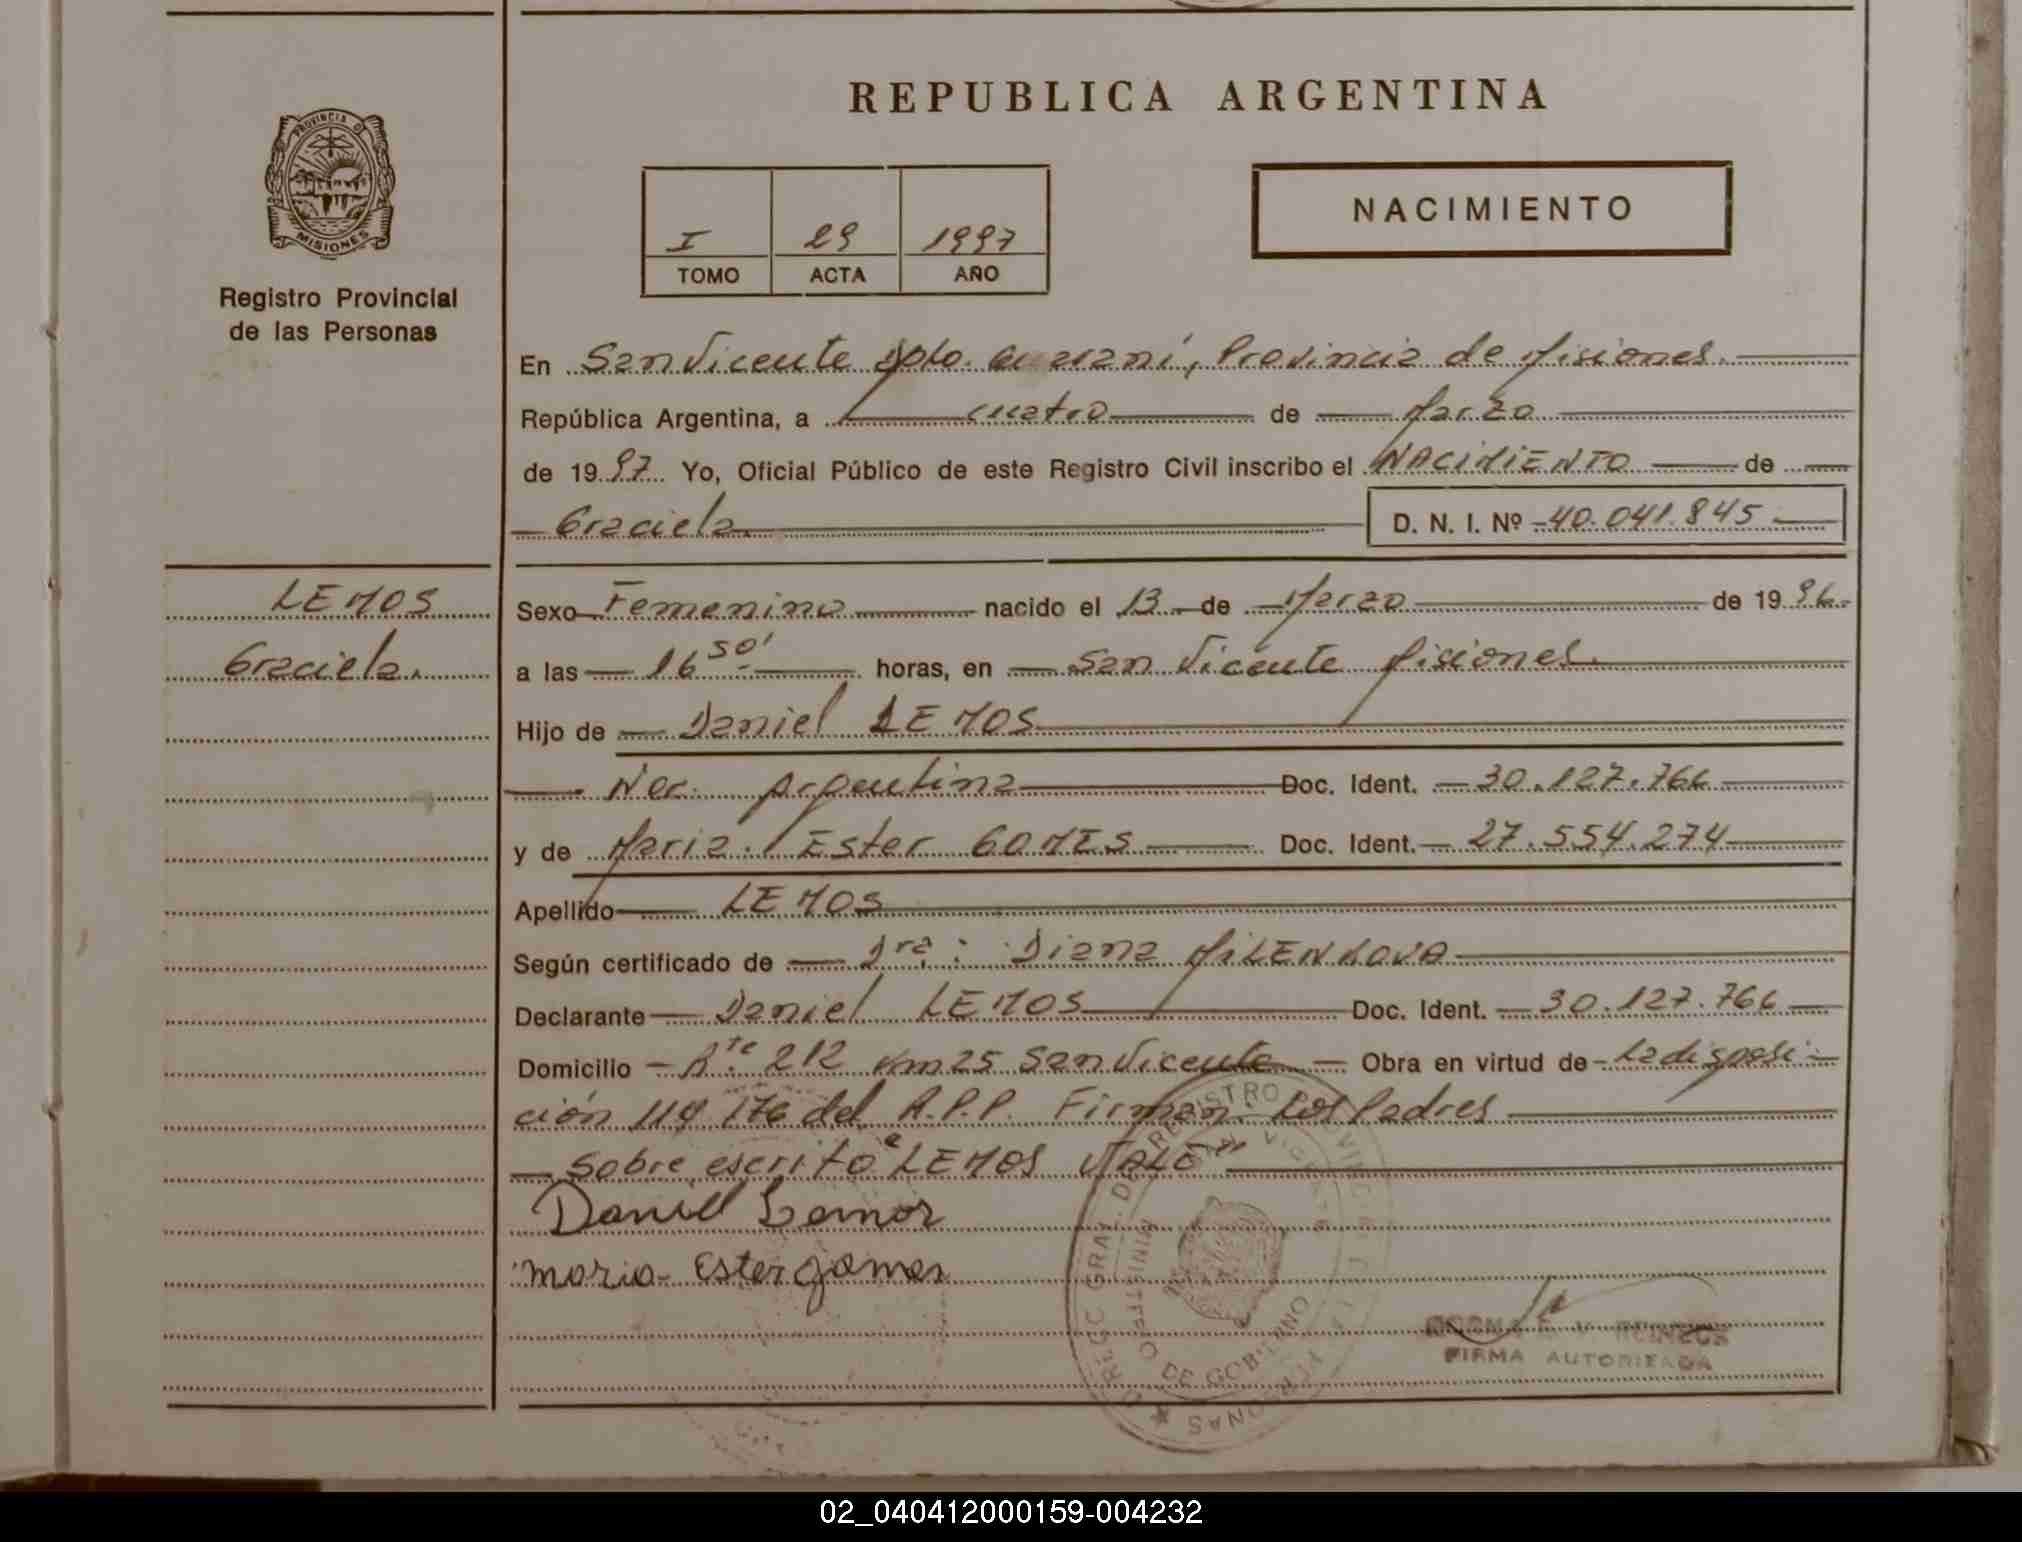 REPUBLICA ARGENTINA
PROVINCIA DE
MISIONES
Registro Provincial
de las Personas
I 29 1997
TOMO ACTA AÑO
NACIMIENTO
En San Vicente Dpto. Guaraní, Provincia de Misiones.
República Argentina, a cuatro de Marzo
de 1997 Yo, Oficial Público de este Registro Civil inscribo el NACIMIENTO de
Graciela. D. N. I. Nº 40.041.845
LEMOS
Graciela.
Sexo Femenino nacido el 13 de Marzo de 1996.
a las 16 50' horas, en San Vicente Misiones.
Hijo de Daniel LEMOS
Nac. Argentina Doc. Ident. 30.127.766
y de Maria Ester GOMES Doc. Ident. 27.554.274
Apellido LEMOS
Según certificado de Dra: Diana MILENKOVA
Declarante Daniel LEMOS Doc. Ident. 30.127.766
Domicilio Rte. 212 Km 25 San Vicente Obra en virtud de La disposi-
ción 119/176 del R.P.P. Firman: Los Padres
Sobre escrito "LEMOS VALE"
Daniel Lemos
maria Ester gomes
DE GOBIERNO
FIRMA AUTORIZADA
02_040412000159-004232